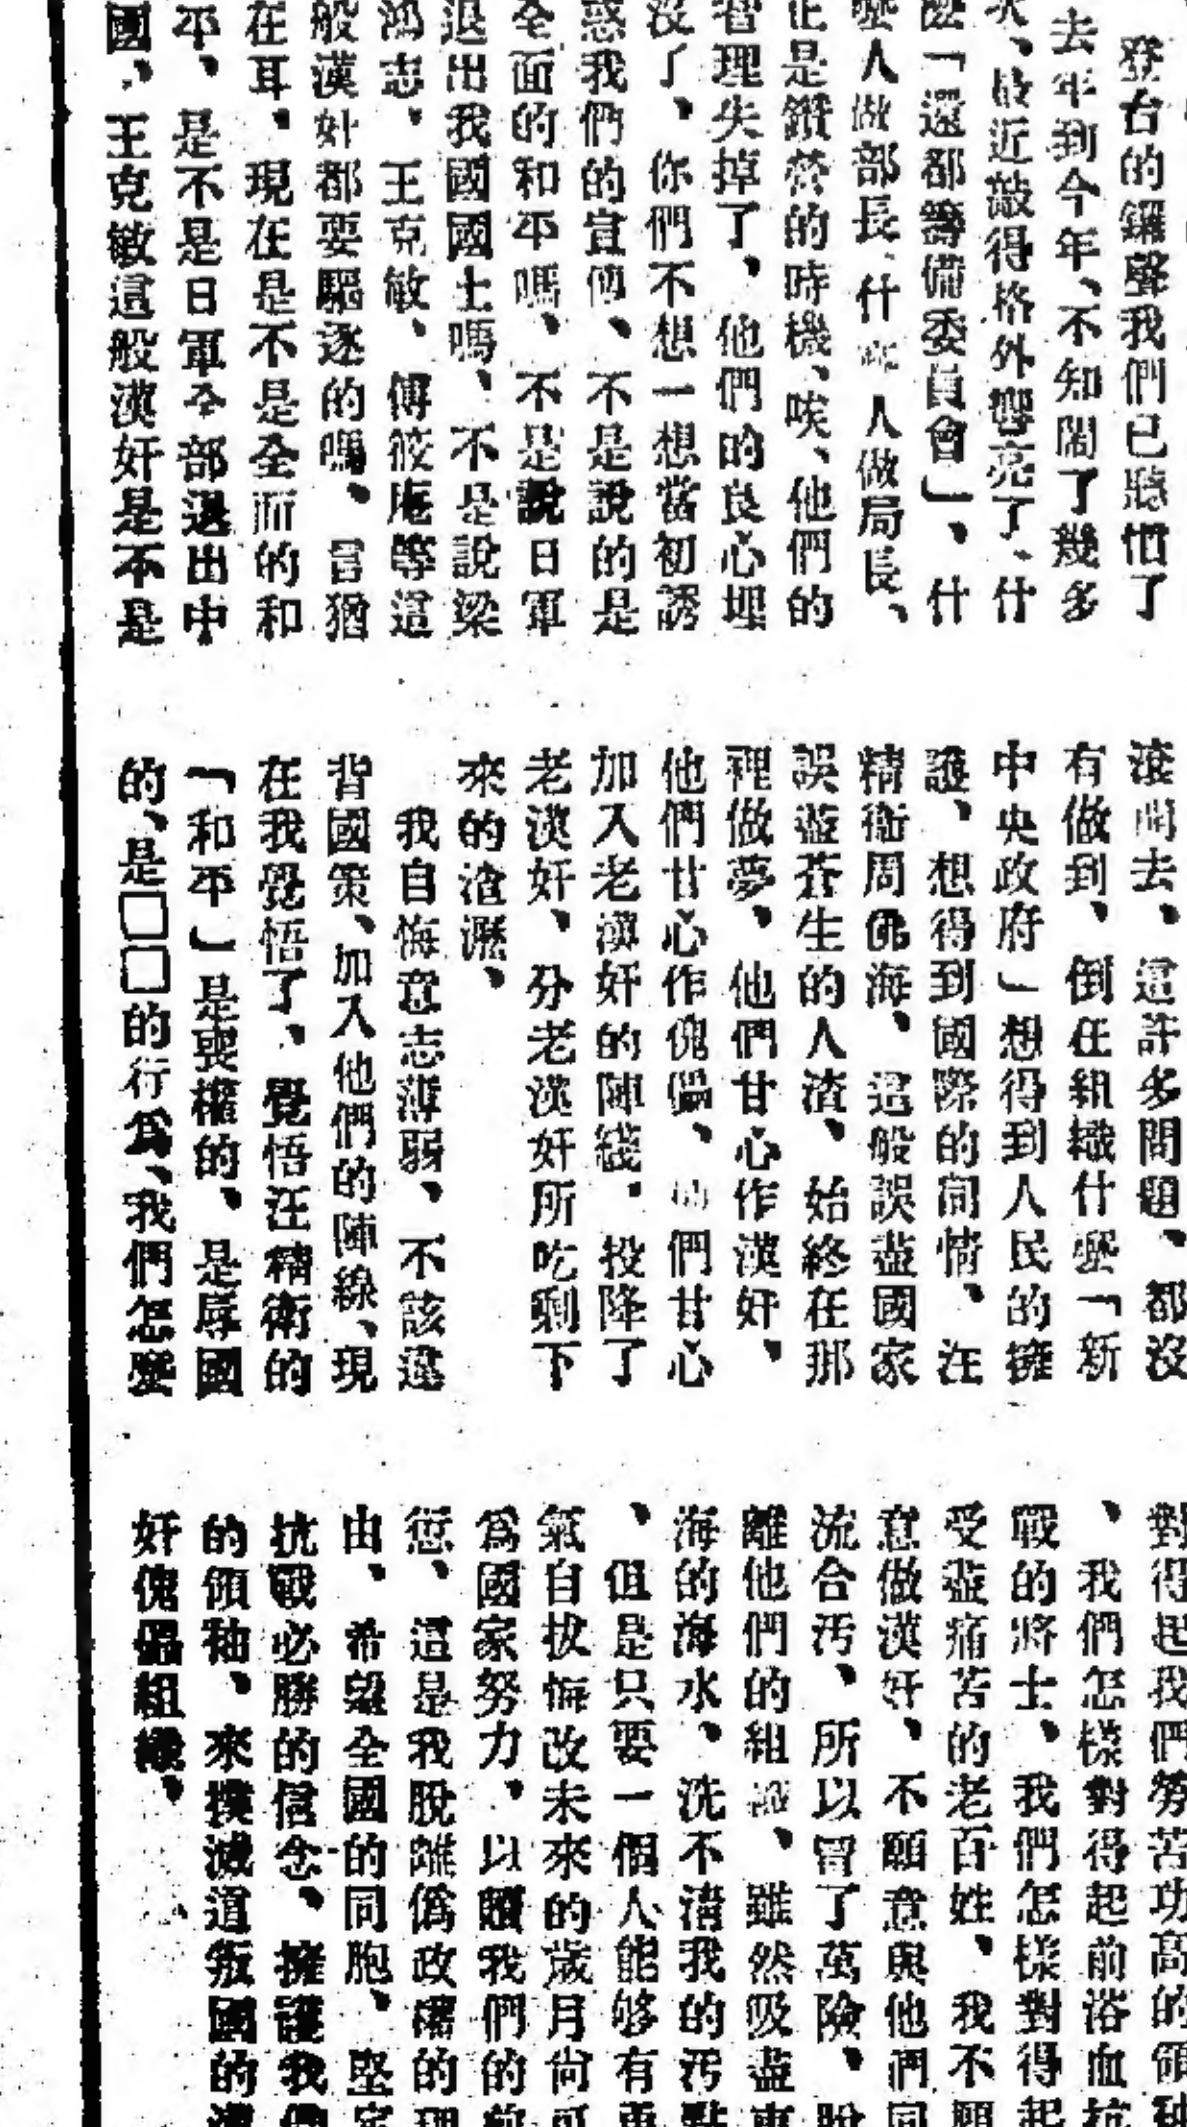 登台的鑼聲我們已聽慣了
去年到今年、不知鬧了幾多
次、最近敲得格外響亮了、什
麼「還都籌備委員會」、什
麼人做部長、什 人做局長、
正是鑽營的時機、唉、他們的
理失掉了、他們的良心埋
沒了、你們不想一想當初誘
惑我們的宣傳、不是說的是
全面的和平嗎、不是說日軍
退出我國國土嗎、不是說梁
鴻志、王克敏、傅筱庵等這
般漢奸都要驅逐的嗎、言猶
在耳、現在是不是全面的和
平、是不是日軍全部退出中
國、王克敏這般漢奸是不是
滾開去、這許多問題、都沒
有做到、倒在組織什麼「新
中央政府」想得到人民的擁
護、想得到國際的同情、汪
精衛周佛海、這般誤盡國家
誤盡蒼生的人渣、始終在那
裡做夢、他們甘心作漢奸、
他們甘心作傀儡、他們甘心
加入老漢奸的陣綫、投降了
老漢奸、分老漢奸所吃剩下
來的渣瀝、
我自悔意志薄弱、不該違
背國策、加入他們的陣線、現
在我覺悟了、覺悟汪精衛的
「和平」是喪權的、是辱國
的、是□□的行爲、我們怎麼
對得起我們勞苦功高的領
、我們怎樣對得起前浴血抗
戰的將士、我們怎樣對得起
受盡痛苦的老百姓、我不願
意做漢奸、不願意與他們同
流合污、所以冒了萬險、脫
離他們的組織、雖然吸盡東
海的海水、洗不清我的污點
、但是只要一個人能够有勇
氣自拔悔改未來的歲月尚可
爲國家努力、以贖我們的前
愆、這是我脫離僞政權的理
由、希望全國的同胞、堅定
抗戰必勝的信念、擁護我們
的領袖、來撲滅這叛國的漢
奸傀儡組織、